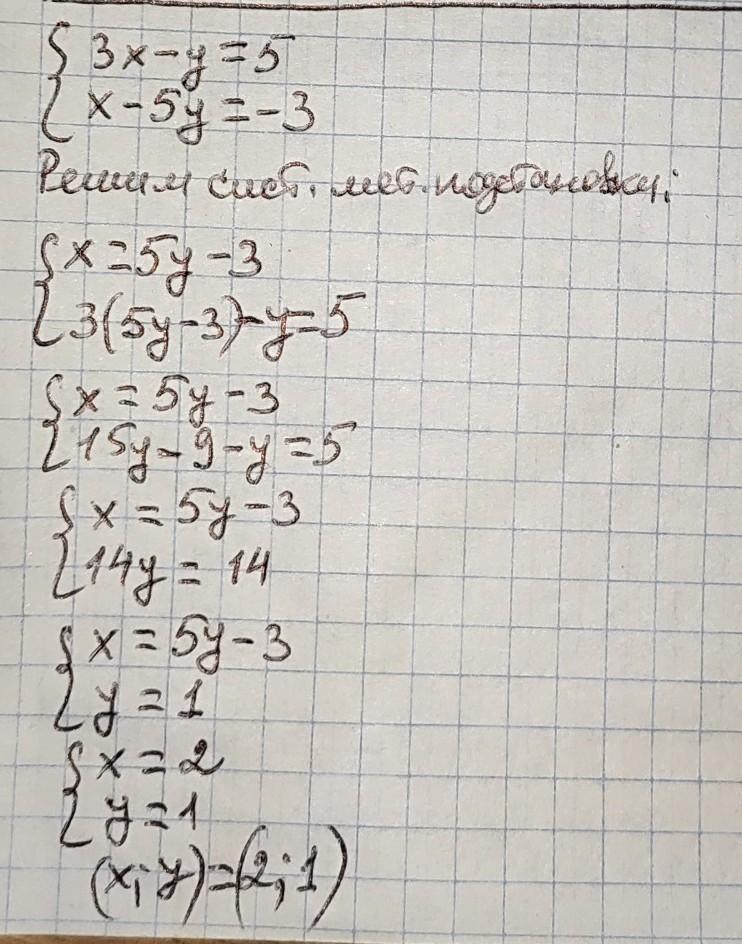 { 3x-y=5
x-5y=-3
Решим сист. мет. подстановки:
{ x=5y-3
3(5y-3)-y=5
{ x=5y-3
15y-9-y=5
{ x=5y-3
14y=14
{ x=5y-3
y=1
{ x=2
y=1
(x;y)=(2;1)